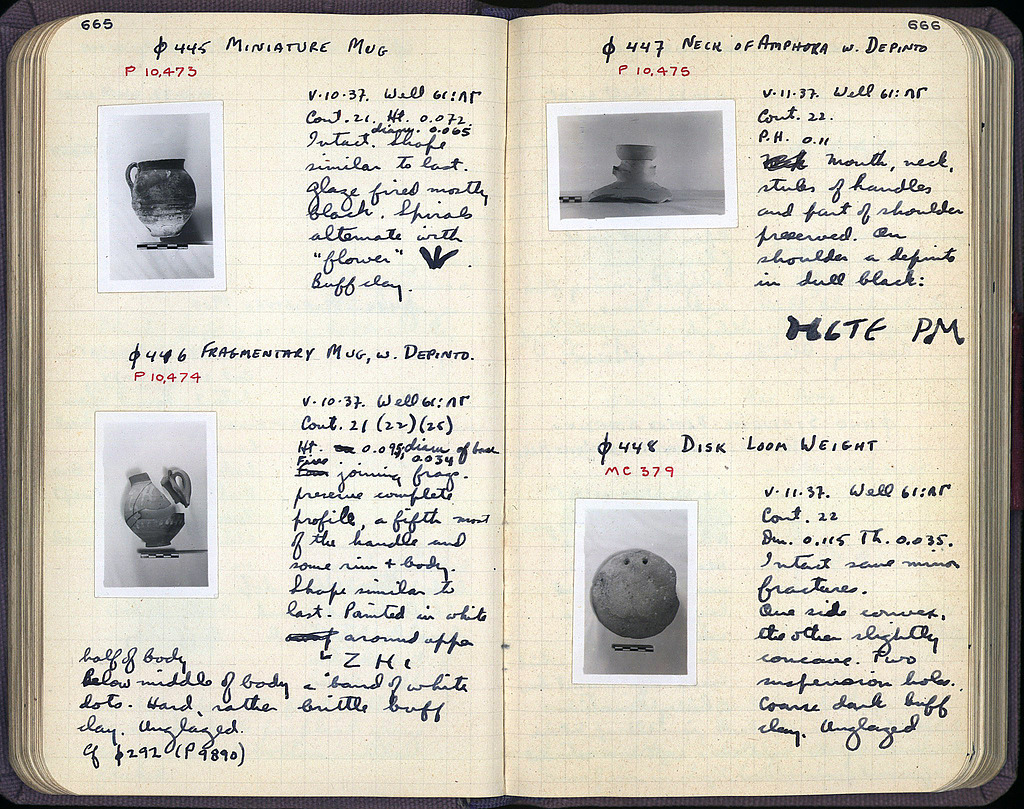 665
φ 445 MINIATURE MUG
P 10,473
V·10·37. Well 61:ΛΓ
Cont. 21. Ht. 0.072.
diam. 0.065
Intact. Shape
similar to last.
Glaze fired mostly
black. Spirals
alternate with
"flower" .
Buff clay.
φ 446 FRAGMENTARY MUG, W. DEPINTO.
P 10,474
V·10·37. Well 61:ΛΓ
Cont. 21 (22) (25)
Ht. 0.095, diam of base
Five 0.034
joining frags.
preserve complete
profile, a fifth most
of the handle and
some rim + body.
Shape similar to
last. Painted in white
around upper
half of body
Ζ Η
Below middle of body a band of white
dots. Hard, rather brittle buff
clay. Unglazed.
Cf φ 292 (P 9890)
666
φ 447 NECK OF AMPHORA W. DEPINTO
P 10,475
V·11·37. Well 61:ΛΓ
Cont. 22.
P.H. 0.11
Mouth, neck,
stubs of handles
and part of shoulder
preserved. On
shoulder a depinto
in dull black:
ϜTE PM
φ 448 DISK LOOM WEIGHT
MC 379
V·11·37. Well 61:ΛΓ
Cont. 22
Dm. 0.115 Th. 0.035.
Intact save minor
fractures.
One side convex,
the other slightly
concave. Two
suspension holes.
Coarse dark buff
clay. Unglazed